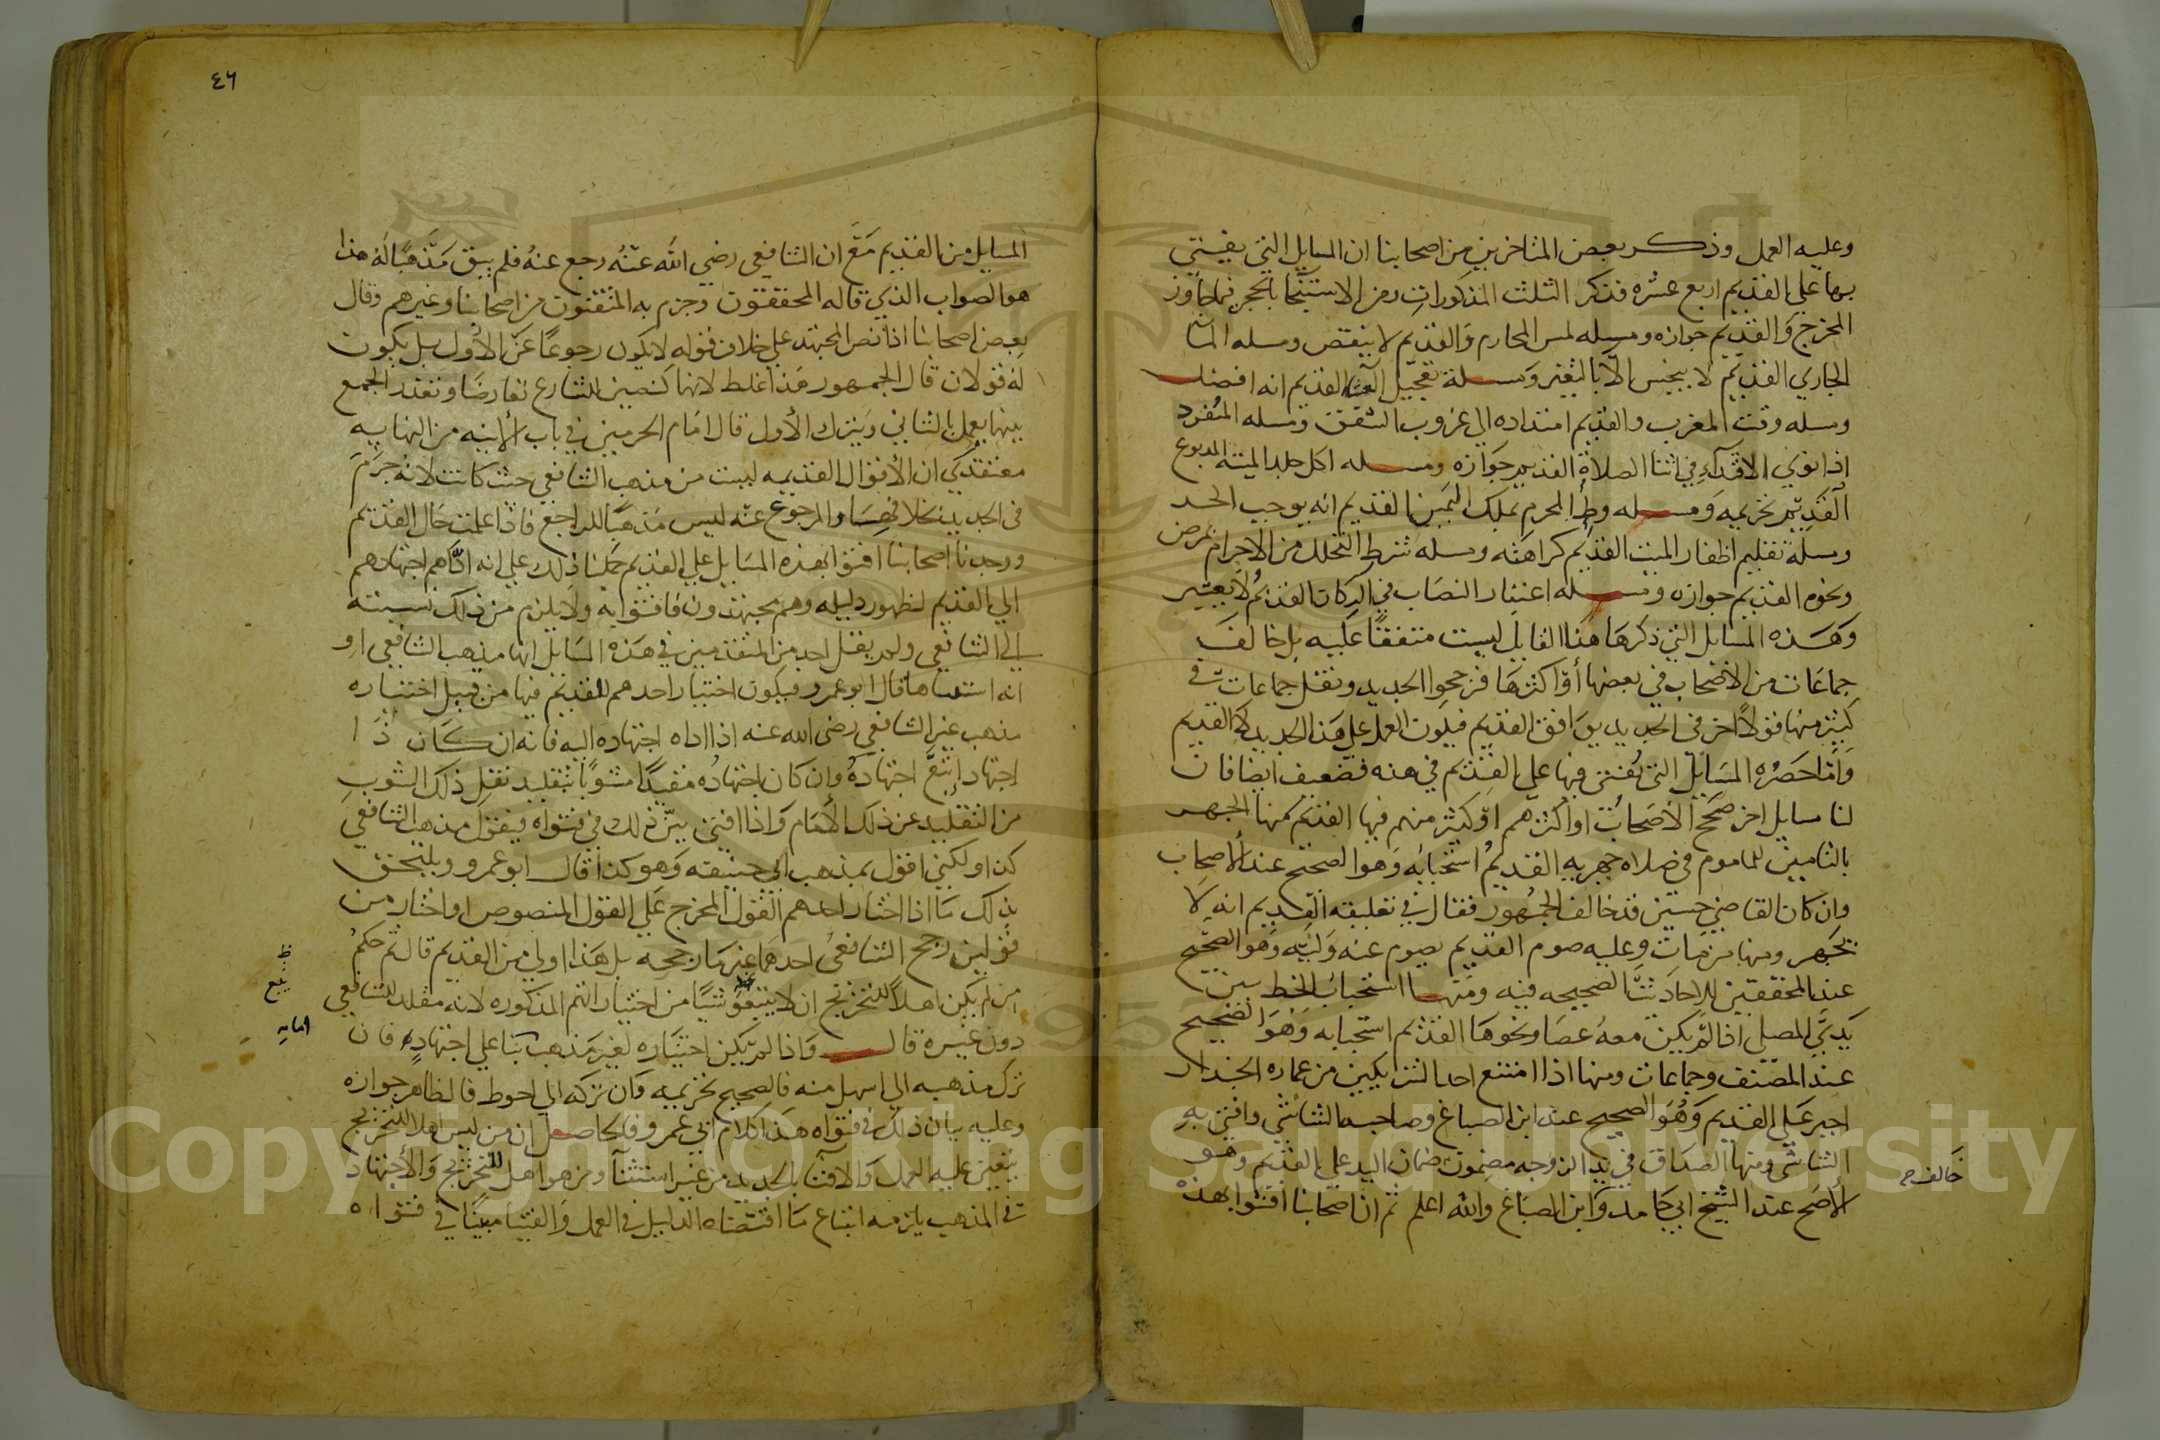 وعليه العمل وذكر بعض المتاخرين من اصحابنا ان المسايل التي يفتي
بها علي القديم اربع عشره فذكر الثلث المذكورات ومن الاستنجا بالحجر فيما جاوز
المخرج والقديم جوازه ومسله لمس المحارم والقديم لا ينقض ومسله الما
الجاري القديم لا ينجس الا بالتغير ومسلة تعجيل العشا القديم انه افضل
ومسله وقت المغرب والقديم امتداده الي غروب الشفق ومسله المنفرد
اذا نوي الاقتدآء في اثنا الصلاة القديم جوازه ومسله اكل جلد الميتة المدبوغ
القديم تحريمه ومسله وطء المحرم بملك اليمين القديم انه يوجب الحد
ومسلة تقليم اظفار الميت القديم كراهته ومسله شرط التحلل من الاحرام بمرض
ونحوه القديم جوازه ومسله اعتبار النصاب في الركاز القديم لا يعتبر
وهذه المسايل التي ذكرها هذا القايل ليست متفقا عليه بل خالف
جماعات من الاصحاب في بعضها أو اكثرها فرجحوا الجديد ونقل جماعات في
كثير منها قولا اخر في الجديد يوافق القديم فيكون العمل علي هذا الجديد لا القديم
واما حصره المسايل التي يفتي فيها علي القديم في هذه فضعيف ايضا فان
لنا مسايل اخر صحح الاصحاب او اكثرهم او كثير منهم فيها القديم فمنها الجهر
بالتامين للماموم في صلاه جهريه القديم استحبابه وهو الصحيح عند الاصحاب
وان كان القاضي حسين قد خالف الجمهور فقال في تعليقه القديم انه لا
يجهر ومنها من مات وعليه صوم القديم يصوم عنه وليه وهو الصحيح
عند المحققين للاحاديث الصحيحه فيه ومنها استحباب الخط بين
يدي المصلي اذا لم يكن معه عصا ونحوها القديم استحبابه وهو الصحيح
عند المصنف وجماعات ومنها اذا امتنع احد الشريكين من عماره الجدار
اجبر علي القديم وهو الصحيح عند ابن الصباغ وصاحبه الشاشي وافتي به
الشاشي ومنها الصداق في يد الزوجه مضمون ضمان اليد علي القديم وهو
الاصح عند الشيخ ابي حامد وابن الصباغ والله اعلم ثم ان اصحابنا افتوا بهذه
خالف
٤٦
المسايل من القديم مع ان الشافعي رضي الله عنه رجع عنه فلم يبق مذهبا له هذا
هو الصواب الذي قاله المحققون وجزم به المتقنون من اصحابنا وغيرهم وقال
بعض اصحابنا اذا نص المجتهد علي خلاف قوله لا يكون رجوعا عن الأول بل يكون
له قولان قال الجمهور هذا غلط لانهما كنصين للشارع تعارضا وتعذر الجمع
بينهما يعمل بالثاني ويترك الأول قال امام الحرمين في باب الآنيه من النهايه
معتقدي ان الأقوال القديمه ليست من مذهب الشافعي حيث كانت لانه جزم
في الجديد بخلافها والمرجوع عنه ليس مذهبا للراجع فاذا علمت حال القديم
ووجدنا اصحابنا افتوا بهذه المسايل علي القديم حملنا ذلك علي انه اداهم اجتهادهم
الي القديم لظهور دليله وهم مجتهدون فافتوا به ولا يلزم من ذلك نسبته
الي الشافعي ولم يقل احد من المتقدمين في هذه المسايل انها مذهب الشافعي او
انه استثناها قال ابو عمرو فيكون اختيار احدهم للقديم فيها من قبيل اختياره
مذهب غير الشافعي رضي الله عنه اذا اداه اجتهاده اليه فانه ان كان ذا
اجتهاد اتبع اجتهاده وان كان اجتهاده مقيدا مشوبا بتقليد نقل ذلك الشوب
من التقليد عن ذلك الامام واذا افتي بين ذلك في فتواه فيقول مذهب الشافعي
كذا ولكني اقول بمذهب ابي حنيفه وهو كذا قال ابو عمرو ويلتحق
بذلك ما اذا اختار احدهم القول المخرج علي القول المنصوص او اختار من
قولين رجح الشافعي احدهما غير ما رجحه بل هذا اولي من القديم قال ثم حكم
من لم يكن اهلا للتخريج ان لا يتبعوا شيا من اختياراتهم المذكوره لانه مقلد للشافعي
دون غيره قال واذا لم يكن اختياره لغير مذهب بنا علي اجتهاده فان
ترك مذهبه الي اسهل منه فالصحيح تحريمه وان تركه الي احوط فالظاهر جوازه
وعليه بيان ذلك في فتواه هذا كلام ابي عمرو فالحاصل ان من ليس اهلا للتخريج
يتعين عليه العمل والافتا بالجديد من غير استثنآ ومن هو اهل للتخريج والاجتهاد
في المذهب يلزمه اتباع ما اقتضاه الدليل في العمل والفتيا مبينا في فتواه
ظ
يتبع
امامه
Copyright © King Saud University